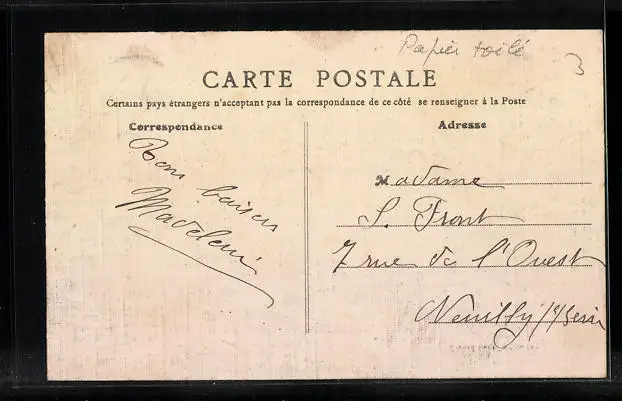 Papier toilé
3
CARTE POSTALE
Certains pays étrangers n'acceptant pas la correspondance de ce côté se renseigner à la Poste
Correspondance
Adresse
Bons baisers
Madeleine
Madame
S. Front
7 rue de l'Ouest
Neuilly s/Seine